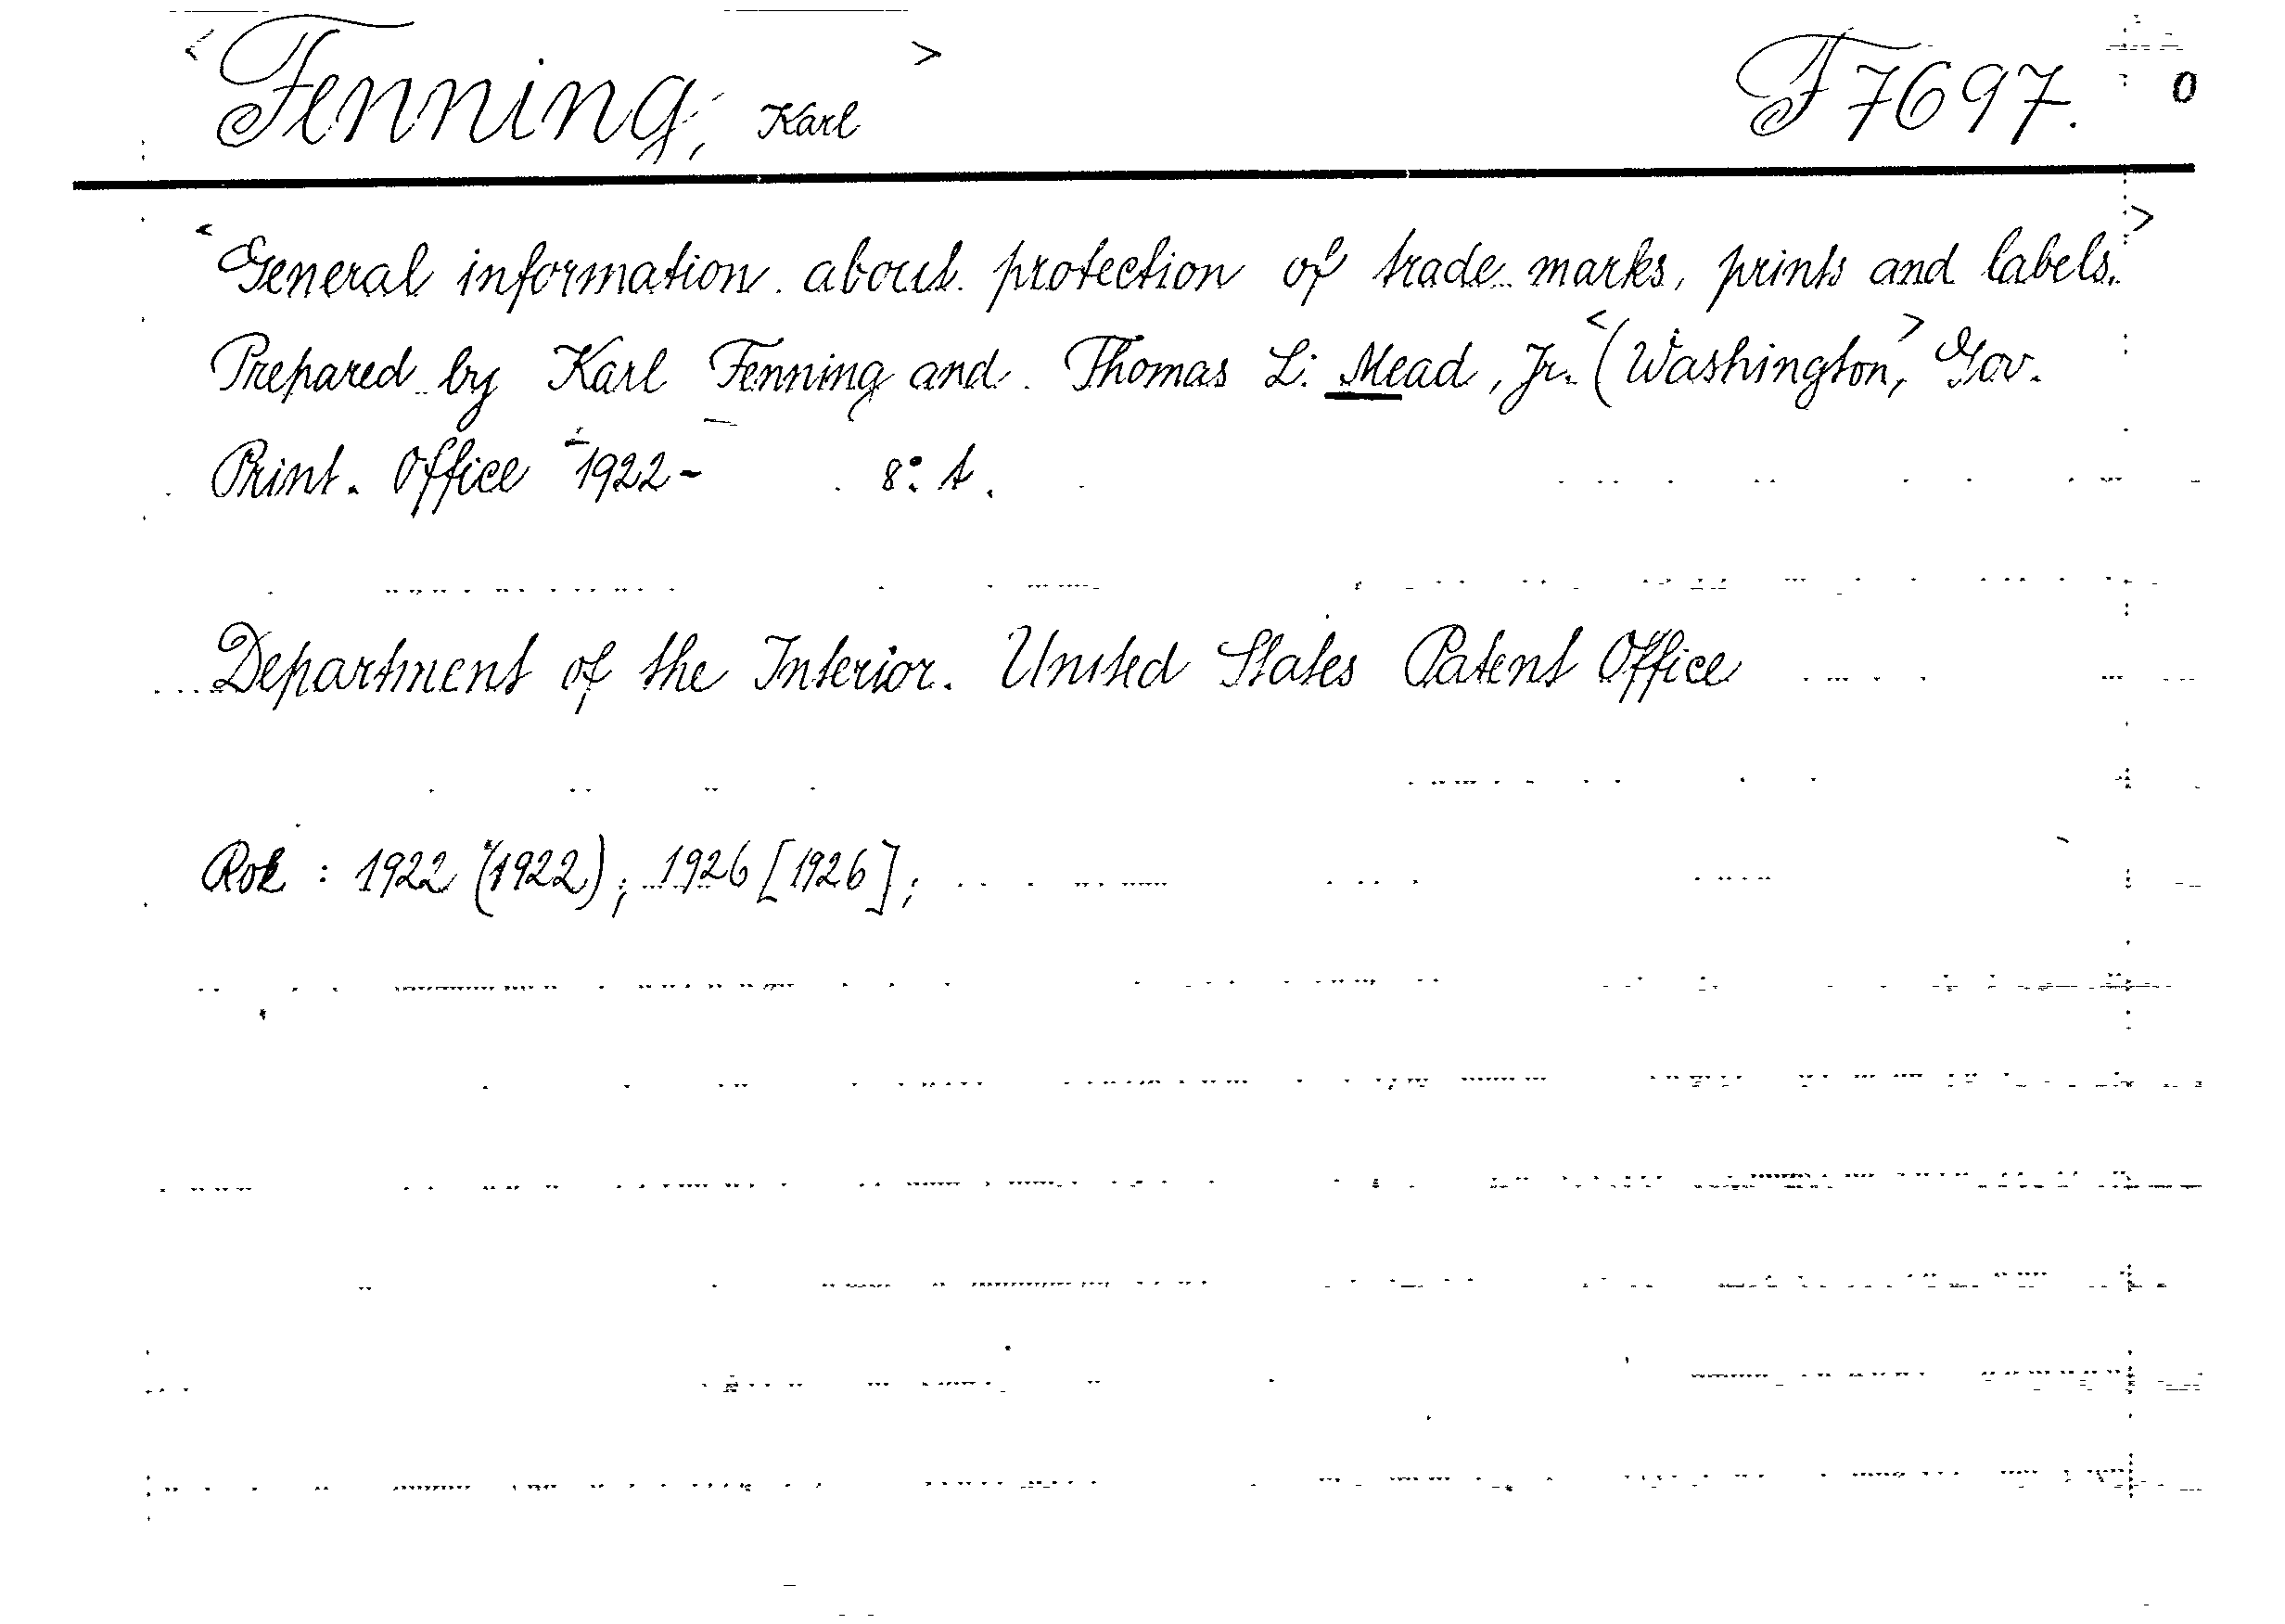 < Fenning, Karl > F 7697. 0
< General information about protection of trade marks, prints and labels. >
Prepared by Karl Fenning and Thomas L. Mead, Jr. <(Washington,> Gov.
Print. Office 1922- 8°.
Department of the Interior. United States Patent Office
Rok : 1922 (1922); 1926 [1926];